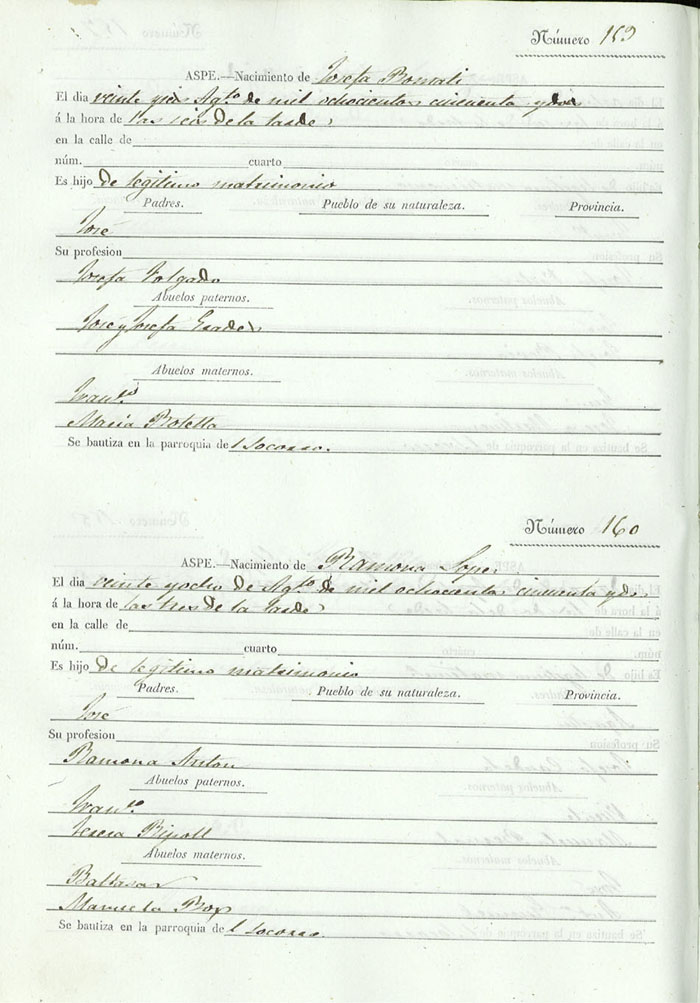 Número 159
ASPE.—Nacimiento de Josefa Bonmati
El dia veinte y seis Agto de mil ochocientos cincuenta y dos
á la hora de las seis de la tarde
en la calle de
núm. cuarto
Es hijo de legitimo matrimonio
Padres. Pueblo de su naturaleza. Provincia.
José
Su profesion
Josefa Folgado
Abuelos paternos.
José y Josefa
Abuelos maternos.
Franco
Maria Botella
Se bautiza en la parroquia del Socorro.
Número 160
ASPE.—Nacimiento de Ramona Lopez
El dia veinte y ocho de Agto de mil ochocientos cincuenta y dos
á la hora de las tres de la tarde
en la calle de
núm. cuarto
Es hijo de legitimo matrimonio
Padres. Pueblo de su naturaleza. Provincia.
José
Su profesion
Ramona Anton
Abuelos paternos.
Franco
Teresa Ripoll
Abuelos maternos.
Baltasar
Manuela
Se bautiza en la parroquia del Socorro.